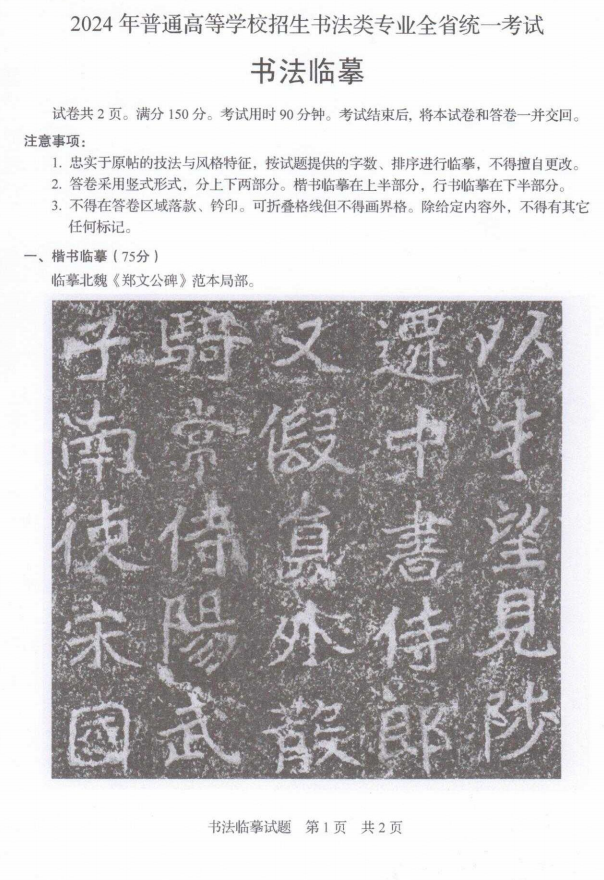 2024年普通高等学校招生书法类专业全省统一考试
书法临摹
试卷共2页。满分150分。考试用时90分钟。考试结束后, 将本试卷和答卷一并交回。
注意事项：
1. 忠实于原帖的技法与风格特征，按试题提供的字数、排序进行临摹，不得擅自更改。
2. 答卷采用竖式形式，分上下两部分。楷书临摹在上半部分，行书临摹在下半部分。
3. 不得在答卷区域落款、钤印。可折叠格线但不得画界格。除给定内容外，不得有其它
任何标记。
一、楷书临摹（75分）
临摹北魏《郑文公碑》范本局部。
以才望見陟
遷中書侍郎
又假員外散
騎常侍陽武
子南使宋國
书法临摹试题 第1页 共2页